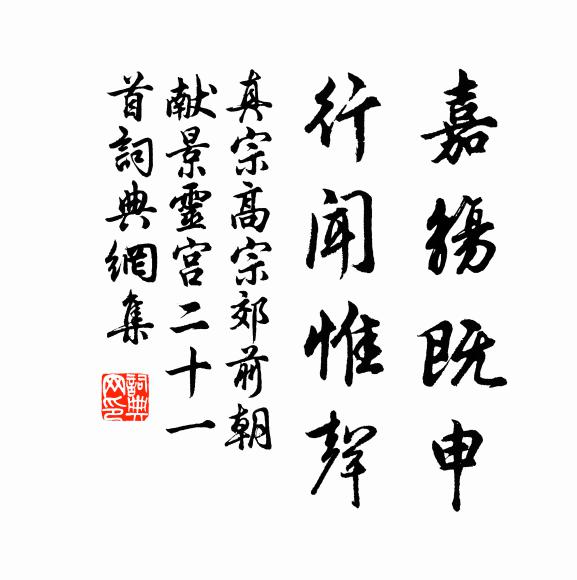 嘉觴既申
行闻惟聲
真宗高宗郊前朝
献景靈宫二十一
首詞典網集
詞典网印